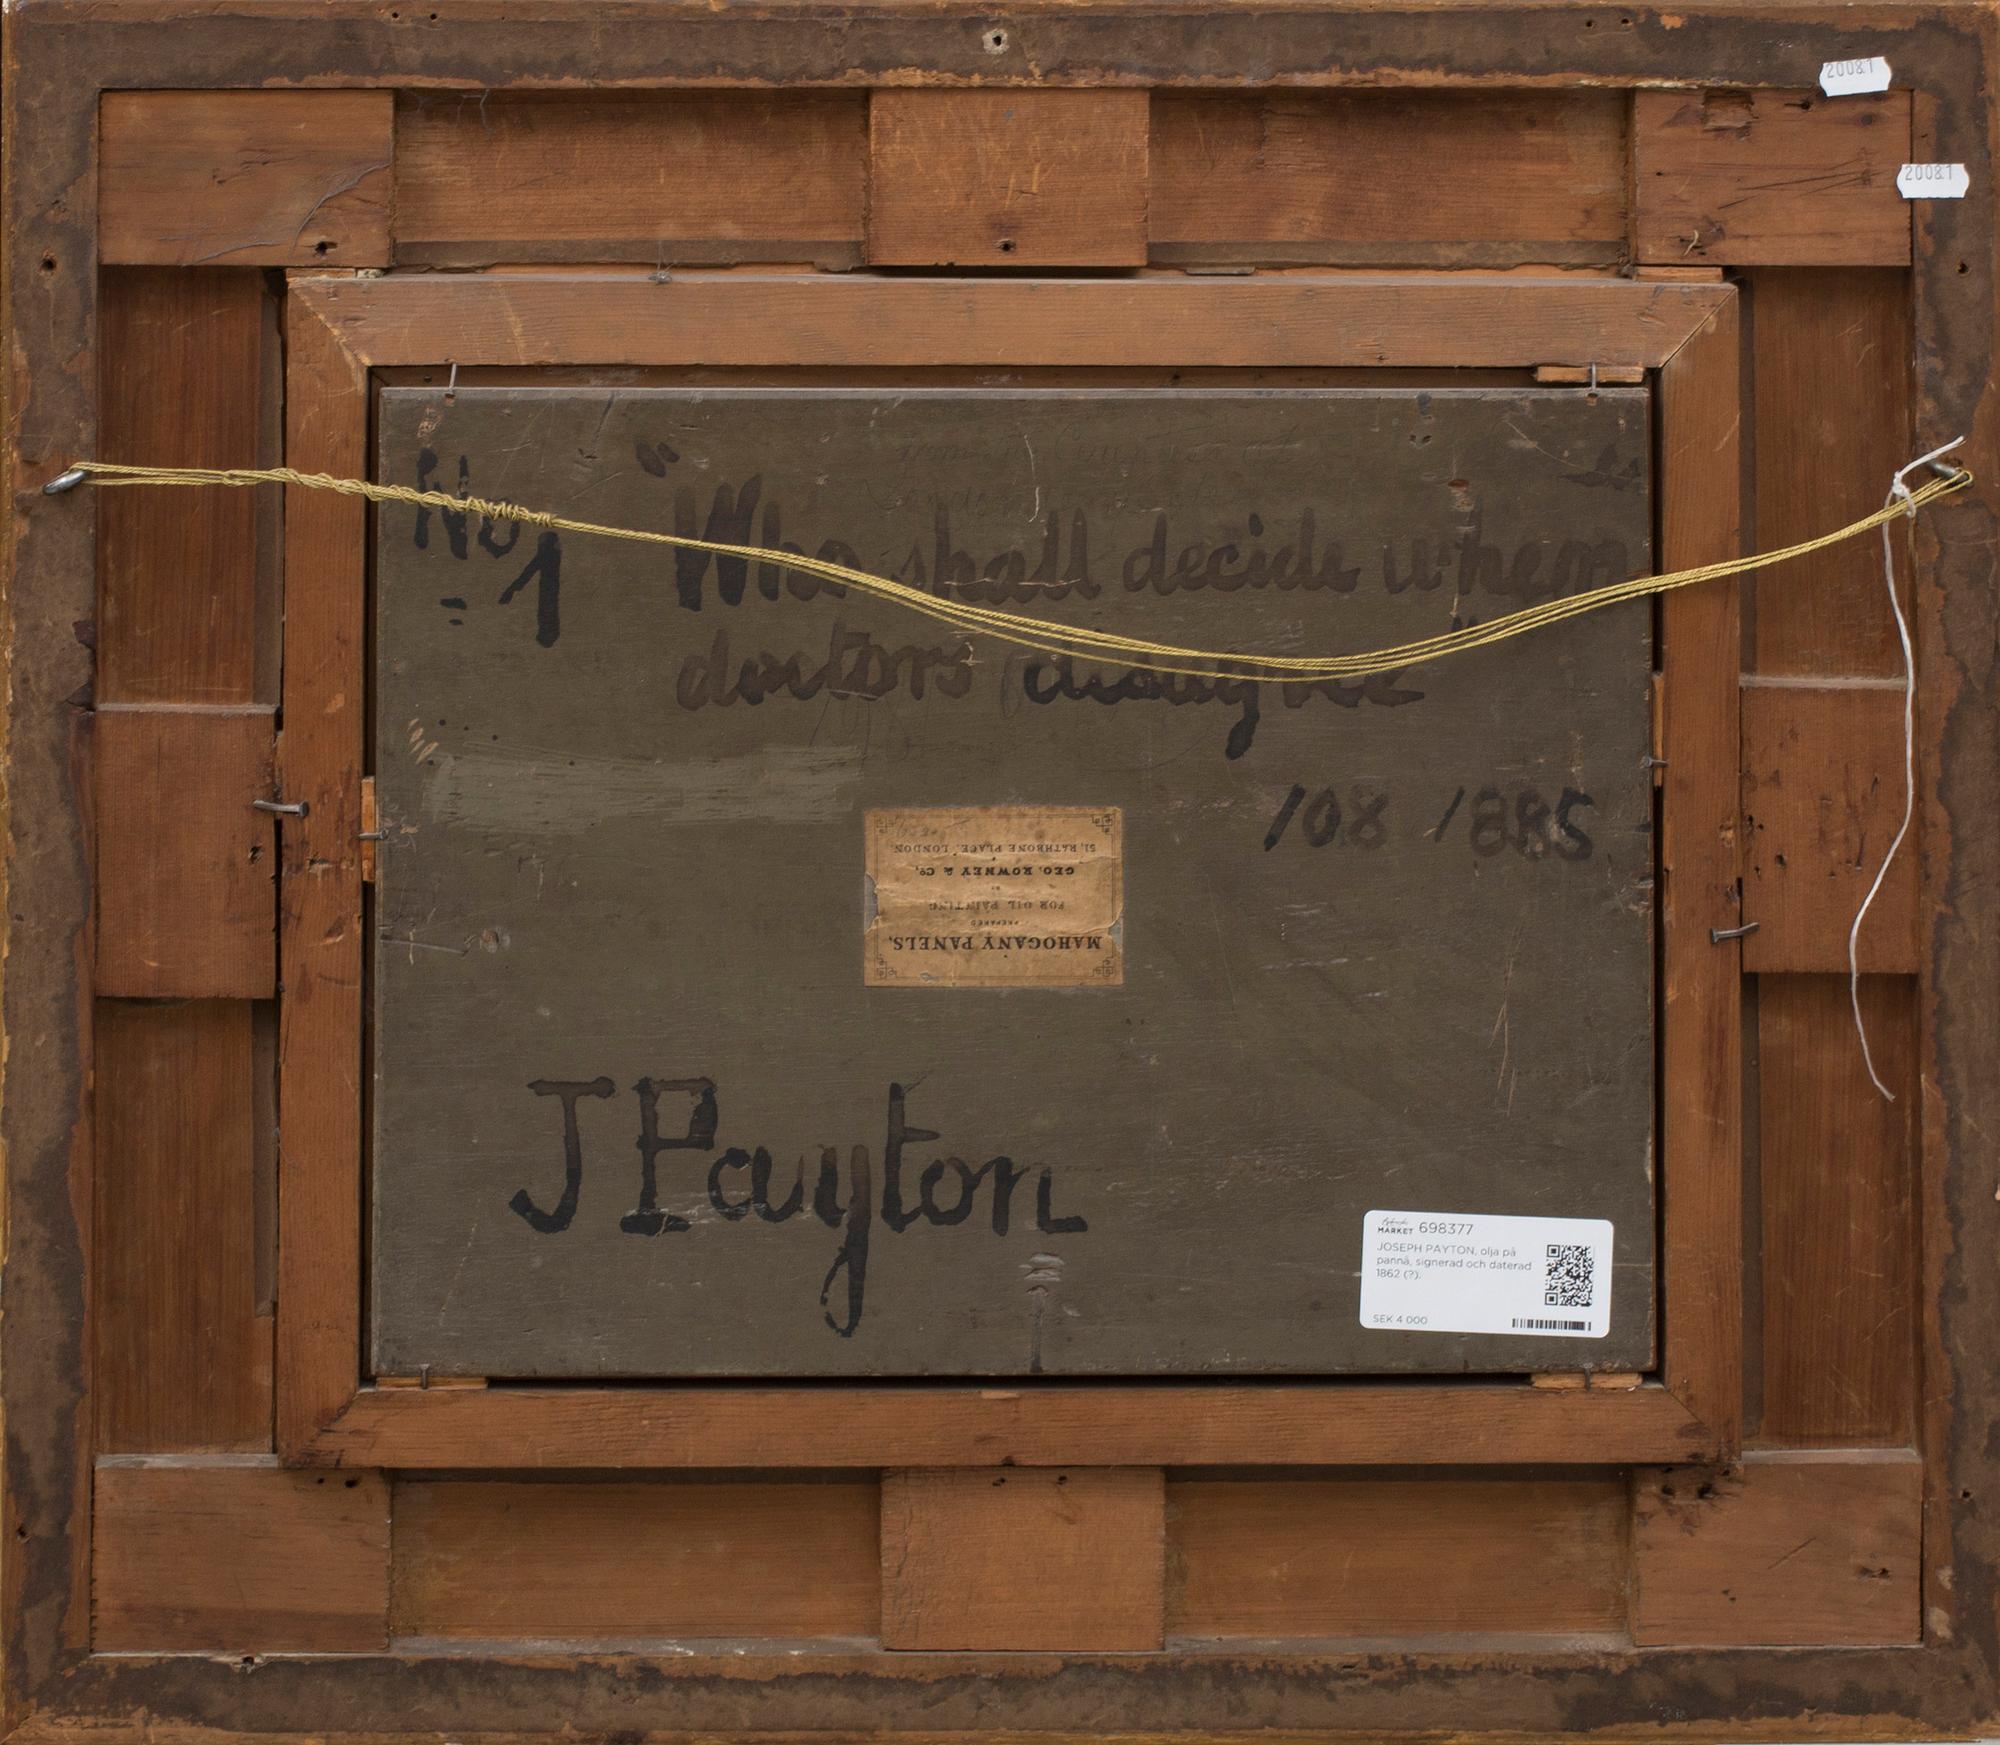 20081
20081
No 1
"Who shall decide when
doctors disagree"
108 1885
MAHOGANY PANELS,
PREPARED
FOR OIL PAINTING
BY
GEO. ROWNEY & Co,
51, RATHBONE PLACE, LONDON.
J Payton
MARKET 698377
JOSEPH PAYTON, olja på
pannå, signerad och daterad
1862 (?).
SEK 4 000